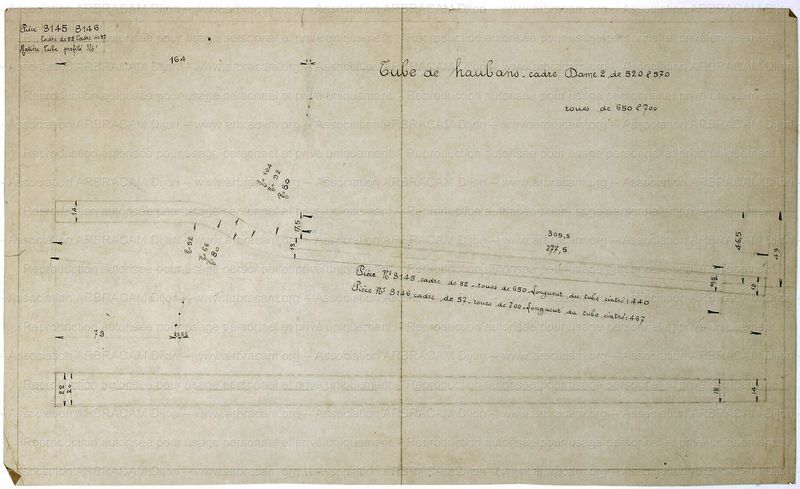 Pièce 3145 3146
Cadre de 52 Cadre de 57
Matière Tube profilé N°
164
Tube de haubans - cadre Dame 2 de 520 & 570
roues de 650 & 700
r= 104
r= 92
r= 80
14
17,5
13
305,5
277,5
46,5
49
r=52
r=66
r=80
Pièce N° 3145 cadre de 52 - roues de 650 - Longueur du tube cintré: 440
Pièce N° 3146 cadre de 57 - roues de 700 - Longueur du tube cintré: 467
12
79
22
20
15
14
Association ARBRACAM Dijon – www.arbracam.org – Association ARBRACAM Dijon – www.arbracam.org
Reproduction autorisée pour usage personnel et privé uniquement